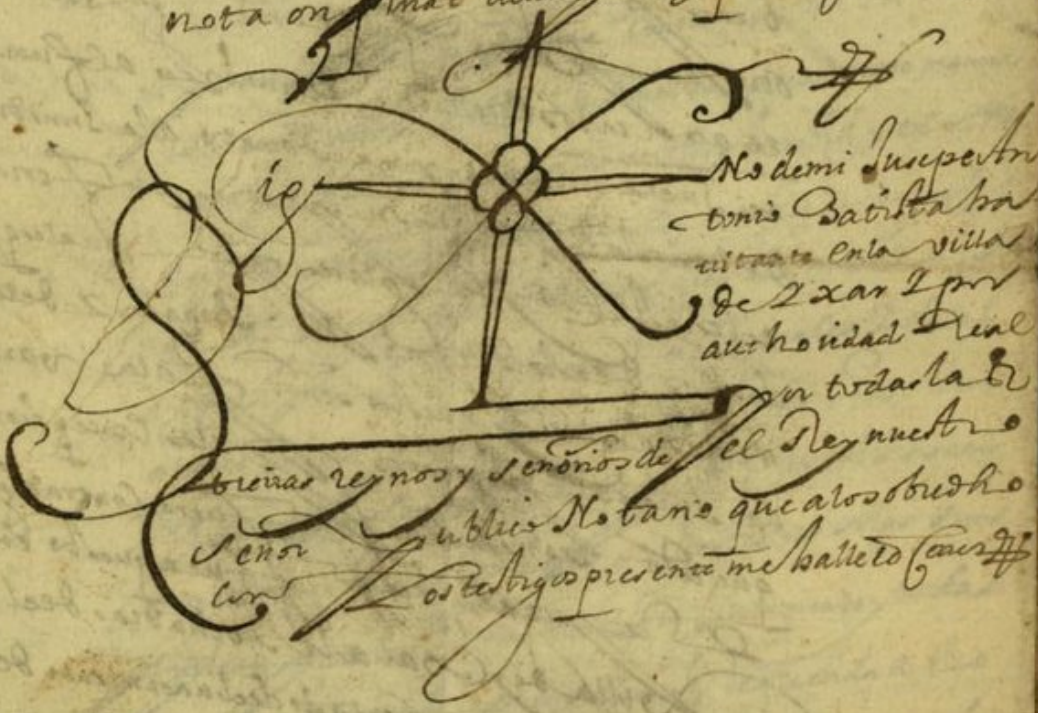 nota
Sig No de mi Jusepe An
tonio Batista ha
uitante en la villa
de Ixar I por
authoridad Real
por todas la s
tierras reynos y señorios de el Rey nuestro
Señor Publico Notario que a lo sobredho
con los testigos presente me halle et Cerre